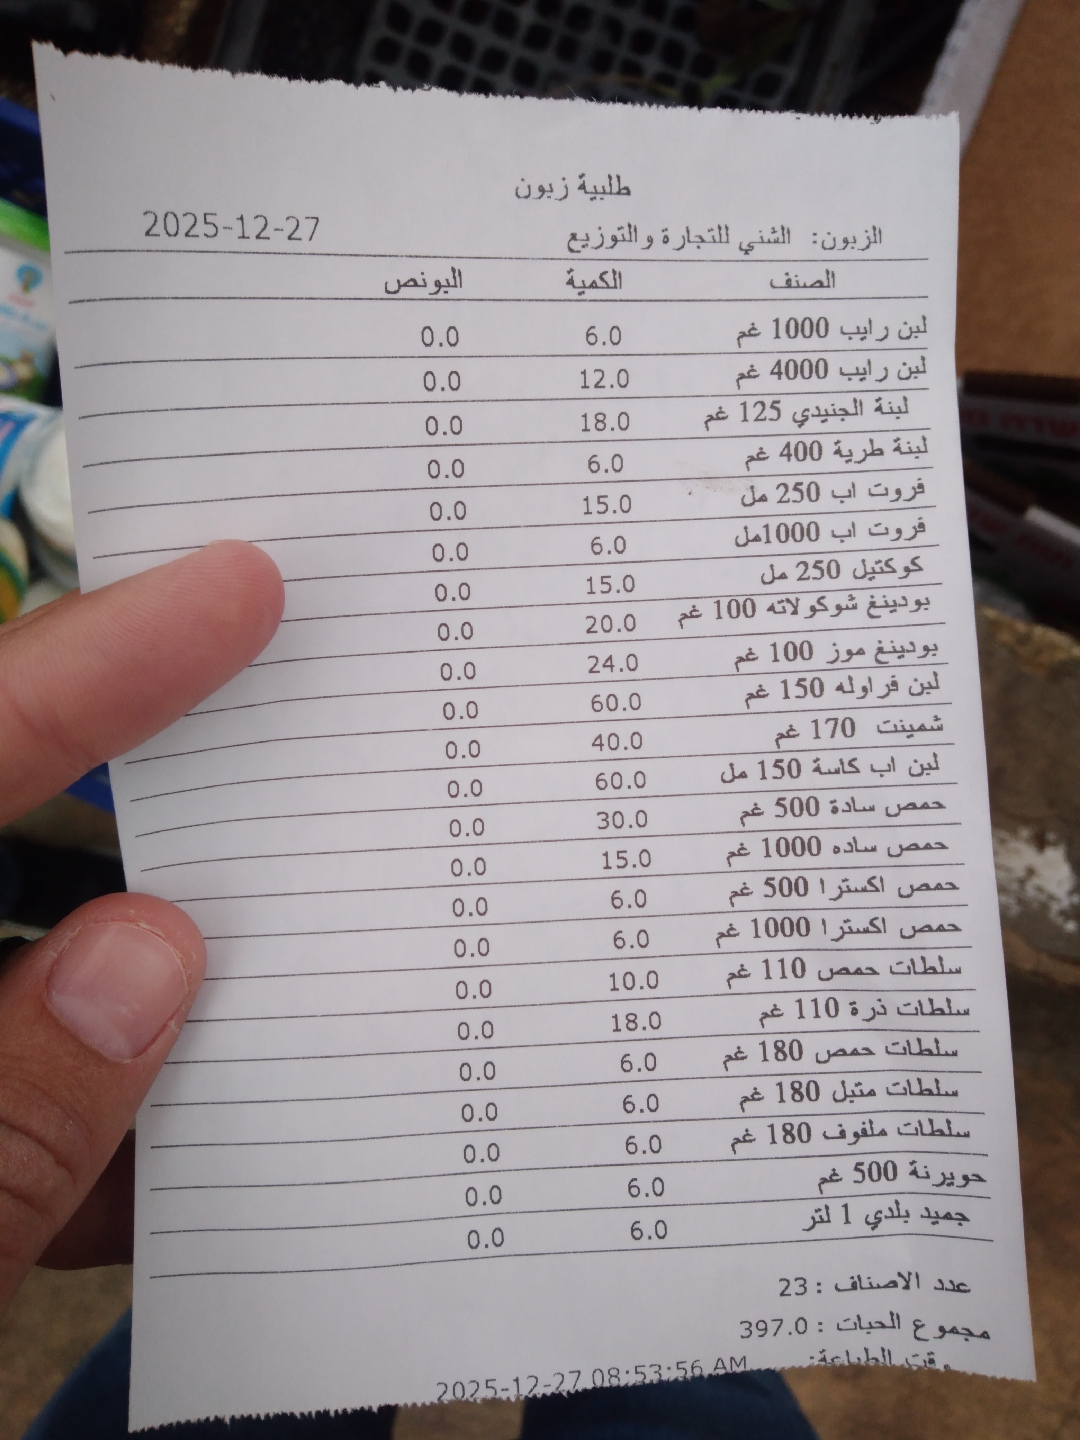 طلبية زبون
الزبون: الشني للتجارة والتوزيع 2025-12-27
الصنف الكمية البونص
لبن رايب 1000 غم 6.0 0.0
لبن رايب 4000 غم 12.0 0.0
لبنة الجنيدي 125 غم 18.0 0.0
لبنة طرية 400 غم 6.0 0.0
فروت اب 250 مل 15.0 0.0
فروت اب 1000مل 6.0 0.0
كوكتيل 250 مل 15.0 0.0
بودينغ شوكولاته 100 غم 20.0 0.0
بودينغ موز 100 غم 24.0 0.0
لبن فراوله 150 غم 60.0 0.0
شمينت 170 غم 40.0 0.0
لبن اب كاسة 150 مل 60.0 0.0
حمص سادة 500 غم 30.0 0.0
حمص ساده 1000 غم 15.0 0.0
حمص اكسترا 500 غم 6.0 0.0
حمص اكسترا 1000 غم 6.0 0.0
سلطات حمص 110 غم 10.0 0.0
سلطات ذرة 110 غم 18.0 0.0
سلطات حمص 180 غم 6.0 0.0
سلطات متبل 180 غم 6.0 0.0
سلطات ملفوف 180 غم 6.0 0.0
حويرنة 500 غم 6.0 0.0
جميد بلدي 1 لتر 6.0 0.0
عدد الاصناف : 23
مجموع الحبات : 397.0
وقت الطباعة: 2025-12-27 08:53:56 AM